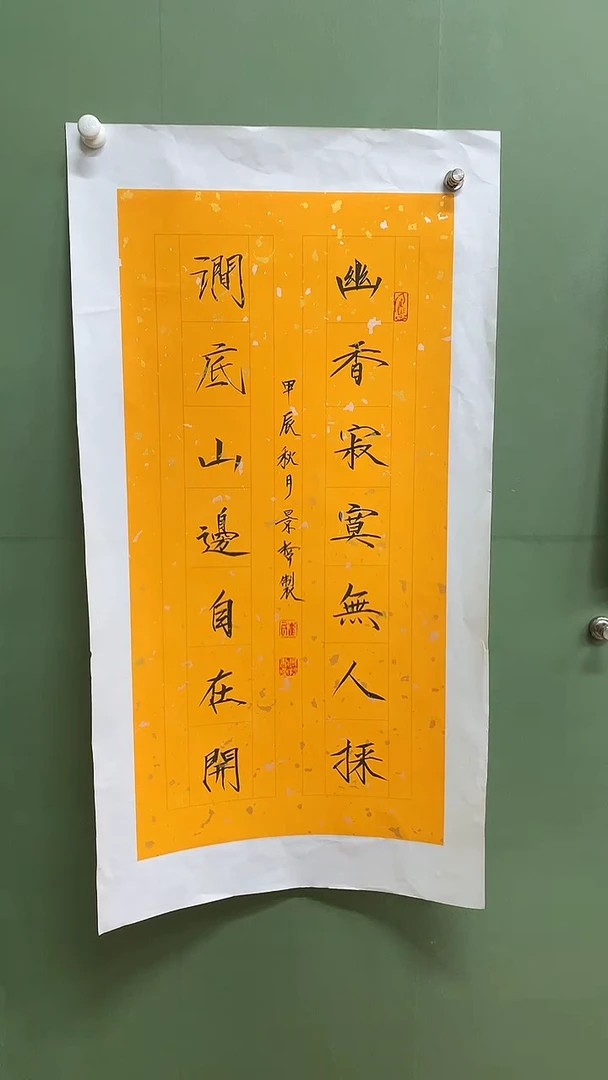 幽香寂寞無人採
澗底山邊自在開
甲辰秋月景製